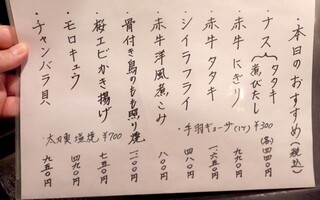 ・本日のおすすめ(税込)
ナス{タタキ 煮びたし (各)四四〇円
赤牛にぎり 九九〇円
赤牛タタキ 一六五〇円
シイラフライ 四八〇円
赤牛洋風煮こみ 八〇〇円
骨付き鳥のもも照り焼 一二〇〇円
桜エビかき揚げ 七五〇円
モロキュウ 四九〇円
チャンバラ貝 九五〇円
・手羽ギョーザ(1ヶ)¥300
・太刀魚塩焼 ¥700